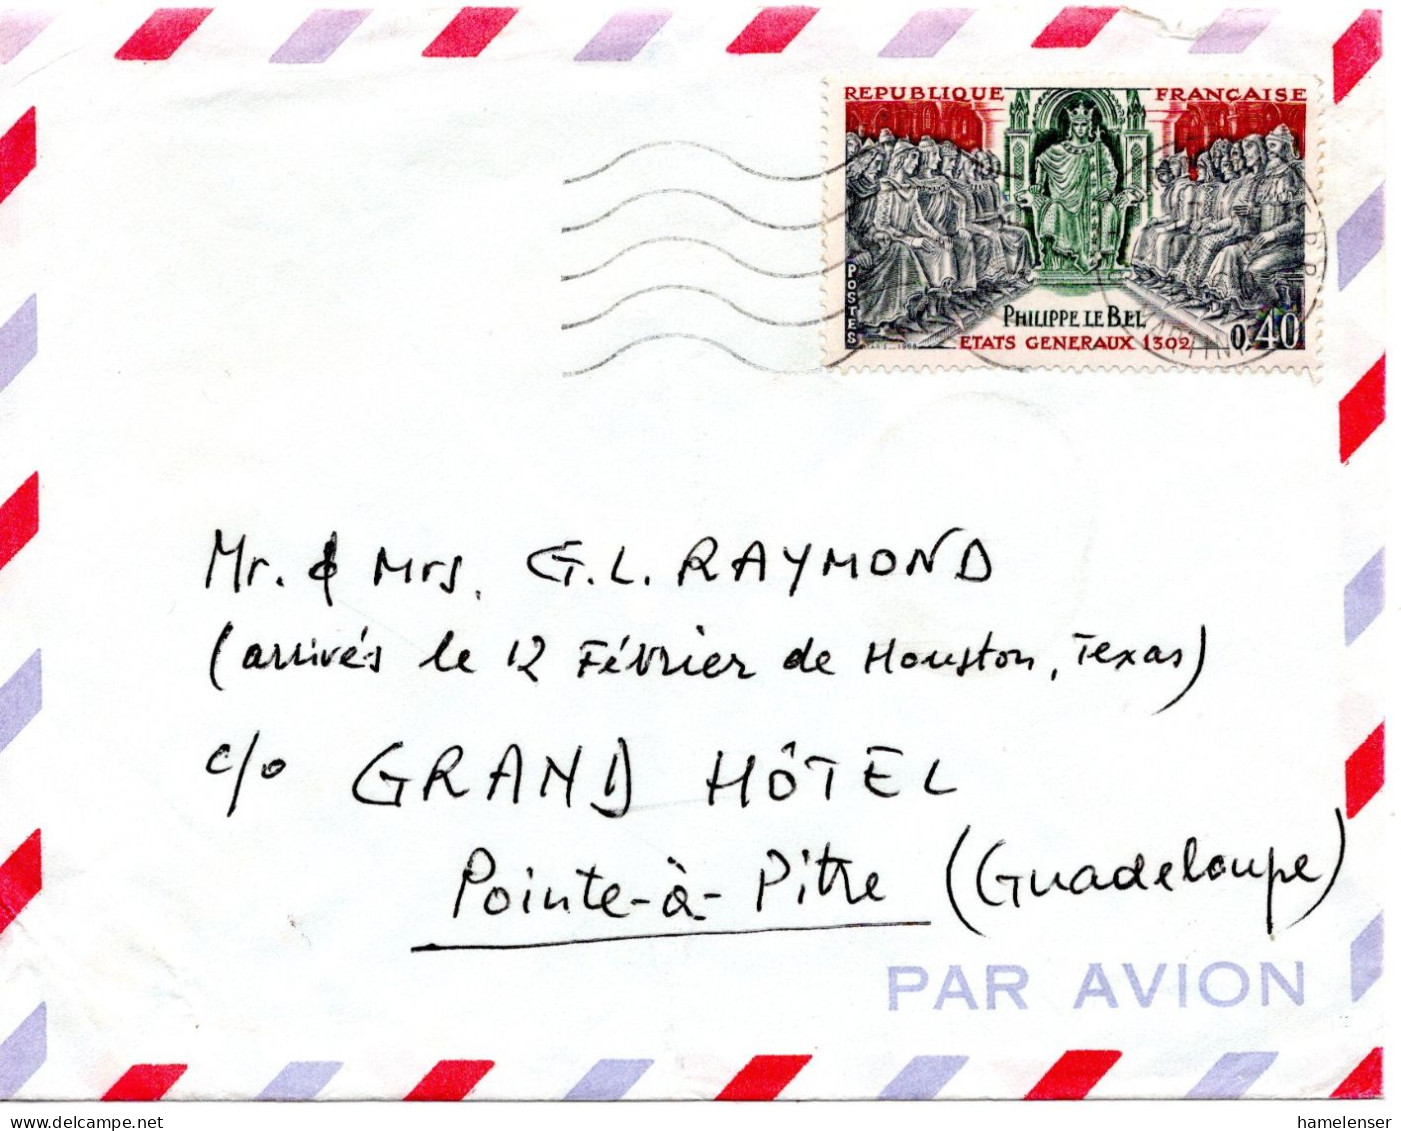 REPUBLIQUE FRANÇAISE
POSTES
PHILIPPE LE BEL
ETATS GENERAUX 1302
0,40
Mr. & Mrs. G.L. RAYMOND
(arrivés le 12 Février de Houston, Texas)
c/o GRAND HÔTEL
Pointe-à-Pitre (Guadeloupe)
PAR AVION
hamelenser